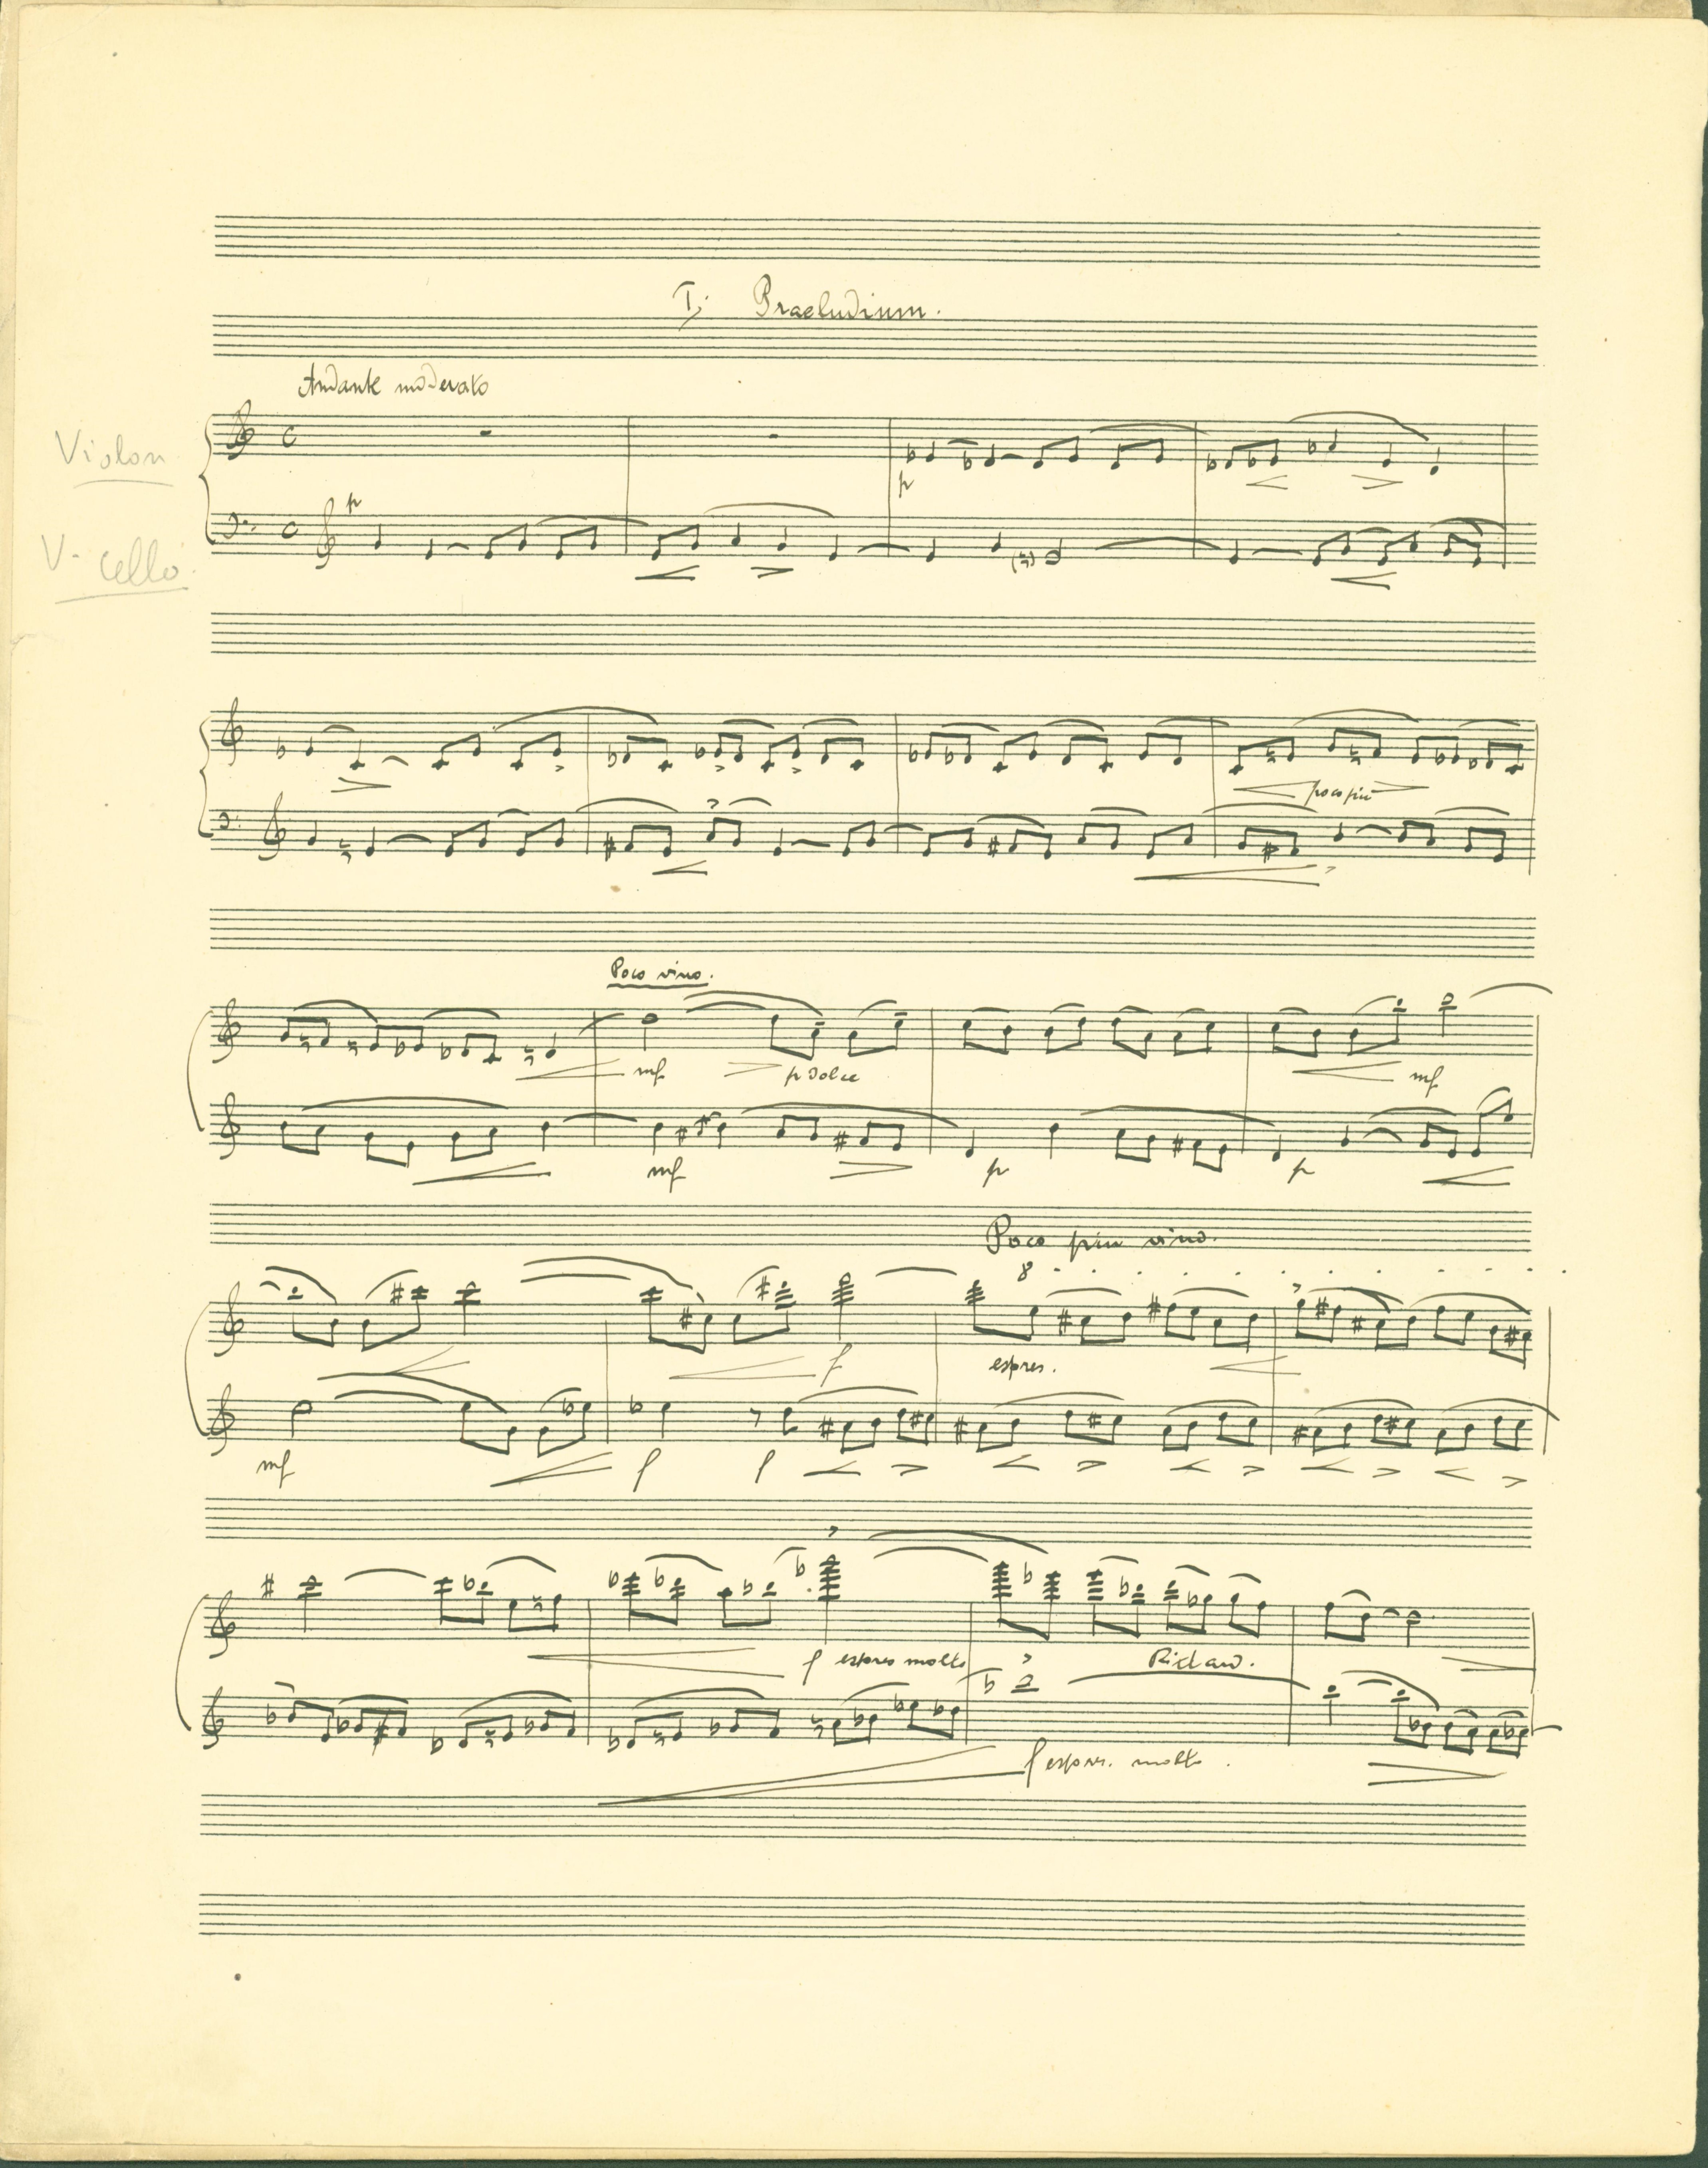 I; Praeludium.
Andante moderato
Violon
p
p
V-cello
poco più
Poco vivo.
mf p dolce mf
mf p p
Poco più vivo.
8
f espres.
mf f f
f espres molto Ritard.
f espres. molto.